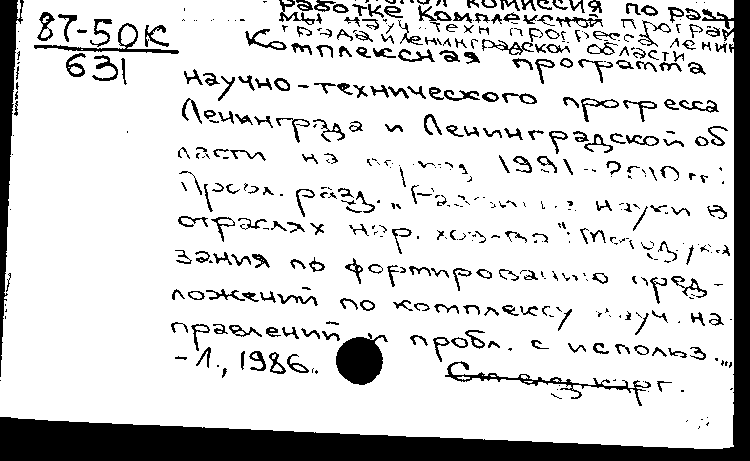 комиссия по разра
работке Комплексной програм
мы науч.-техн. прогресса Ленин
града и Ленинградской области
87-50К
631
Комплексная программа
научно-технического прогресса
Ленинграда и Ленинградской об
ласти на период 1991-2010 гг.:
Пробл. разд. „Развитие науки в
отраслях нар. хоз-ва": Метод. ука
зания по формированию пред-
ложений по комплексу науч. на
правлений и пробл. с использ...
-Л., 1986.
См след. карт.